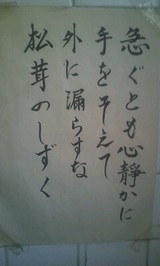 急ぐとも心静かに
手を予えて
外に漏らすな
松茸のしずく